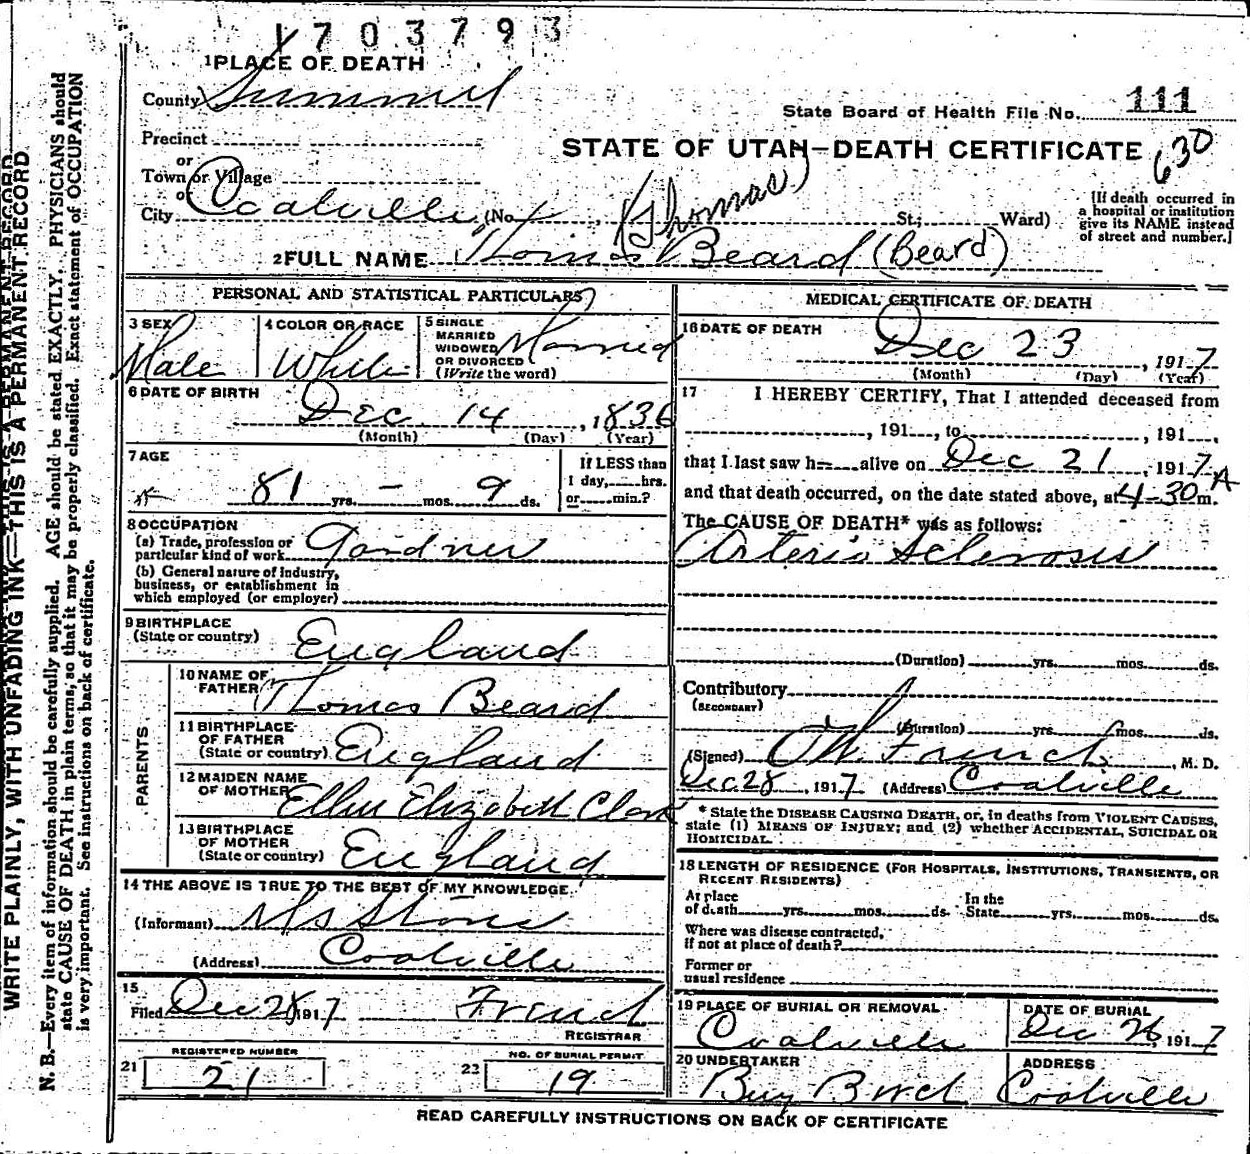 1703793
1 PLACE OF DEATH
County Summit
State Board of Health File No. 111
Precinct
or
STATE OF UTAH—DEATH CERTIFICATE 630
Town or Village
or
City Coalville (No. , (Thomas) St.; Ward)
[If death occurred in
a hospital or institution
give its NAME instead
of street and number.]
2 FULL NAME Thomas Beard (Beard)
PERSONAL AND STATISTICAL PARTICULARS
3 SEX Male
4 COLOR OR RACE White
5 SINGLE
MARRIED
WIDOWED
OR DIVORCED
(Write the word) Married
6 DATE OF BIRTH
Dec 14, 1836
(Month) (Day) (Year)
7 AGE
81 yrs. — mos. 9 ds.
If LESS than
1 day, hrs.
or min.?
8 OCCUPATION
(a) Trade, profession or
particular kind of work Gardner
(b) General nature of industry,
business, or establishment in
which employed (or employer)
9 BIRTHPLACE
(State or country) England
PARENTS
10 NAME OF
FATHER Thomas Beard
11 BIRTHPLACE
OF FATHER
(State or country) England
12 MAIDEN NAME
OF MOTHER Ellen Elizabeth Clark
13 BIRTHPLACE
OF MOTHER
(State or country) England
14 THE ABOVE IS TRUE TO THE BEST OF MY KNOWLEDGE.
(Informant) Mrs Stone
(Address) Coalville
15
Filed Dec 28, 1917 French
REGISTRAR
REGISTERED NUMBER
21 21
NO. OF BURIAL PERMIT
22 19
MEDICAL CERTIFICATE OF DEATH
16 DATE OF DEATH
Dec 23, 1917
(Month) (Day) (Year)
17 I HEREBY CERTIFY, That I attended deceased from
, 191 , to , 191 ,
that I last saw h alive on Dec 21, 1917
and that death occurred, on the date stated above, at 4-30 A m.
The CAUSE OF DEATH* was as follows:
Arterio Sclerosis
(Duration) yrs. mos. ds.
Contributory
(SECONDARY)
(Duration) yrs. mos. ds.
(Signed) French, M. D.
Dec 28, 1917 (Address) Coalville
* State the DISEASE CAUSING DEATH, or, in deaths from VIOLENT CAUSES,
state (1) MEANS OF INJURY; and (2) whether ACCIDENTAL, SUICIDAL OR
HOMICIDAL.
18 LENGTH OF RESIDENCE (FOR HOSPITALS, INSTITUTIONS, TRANSIENTS, OR
RECENT RESIDENTS)
At place
of death yrs. mos. ds.
In the
State yrs. mos. ds.
Where was disease contracted,
if not at place of death?
Former or
usual residence
19 PLACE OF BURIAL OR REMOVAL
Coalville
DATE OF BURIAL
Dec 26, 1917
20 UNDERTAKER
Birch
ADDRESS
Coalville
READ CAREFULLY INSTRUCTIONS ON BACK OF CERTIFICATE
WRITE PLAINLY, WITH UNFADING INK—THIS IS A PERMANENT RECORD
N. B.—Every item of information should be carefully supplied. AGE should be stated EXACTLY. PHYSICIANS should
state CAUSE OF DEATH in plain terms, so that it may be properly classified. Exact statement of OCCUPATION
is very important. See instructions on back of certificate.